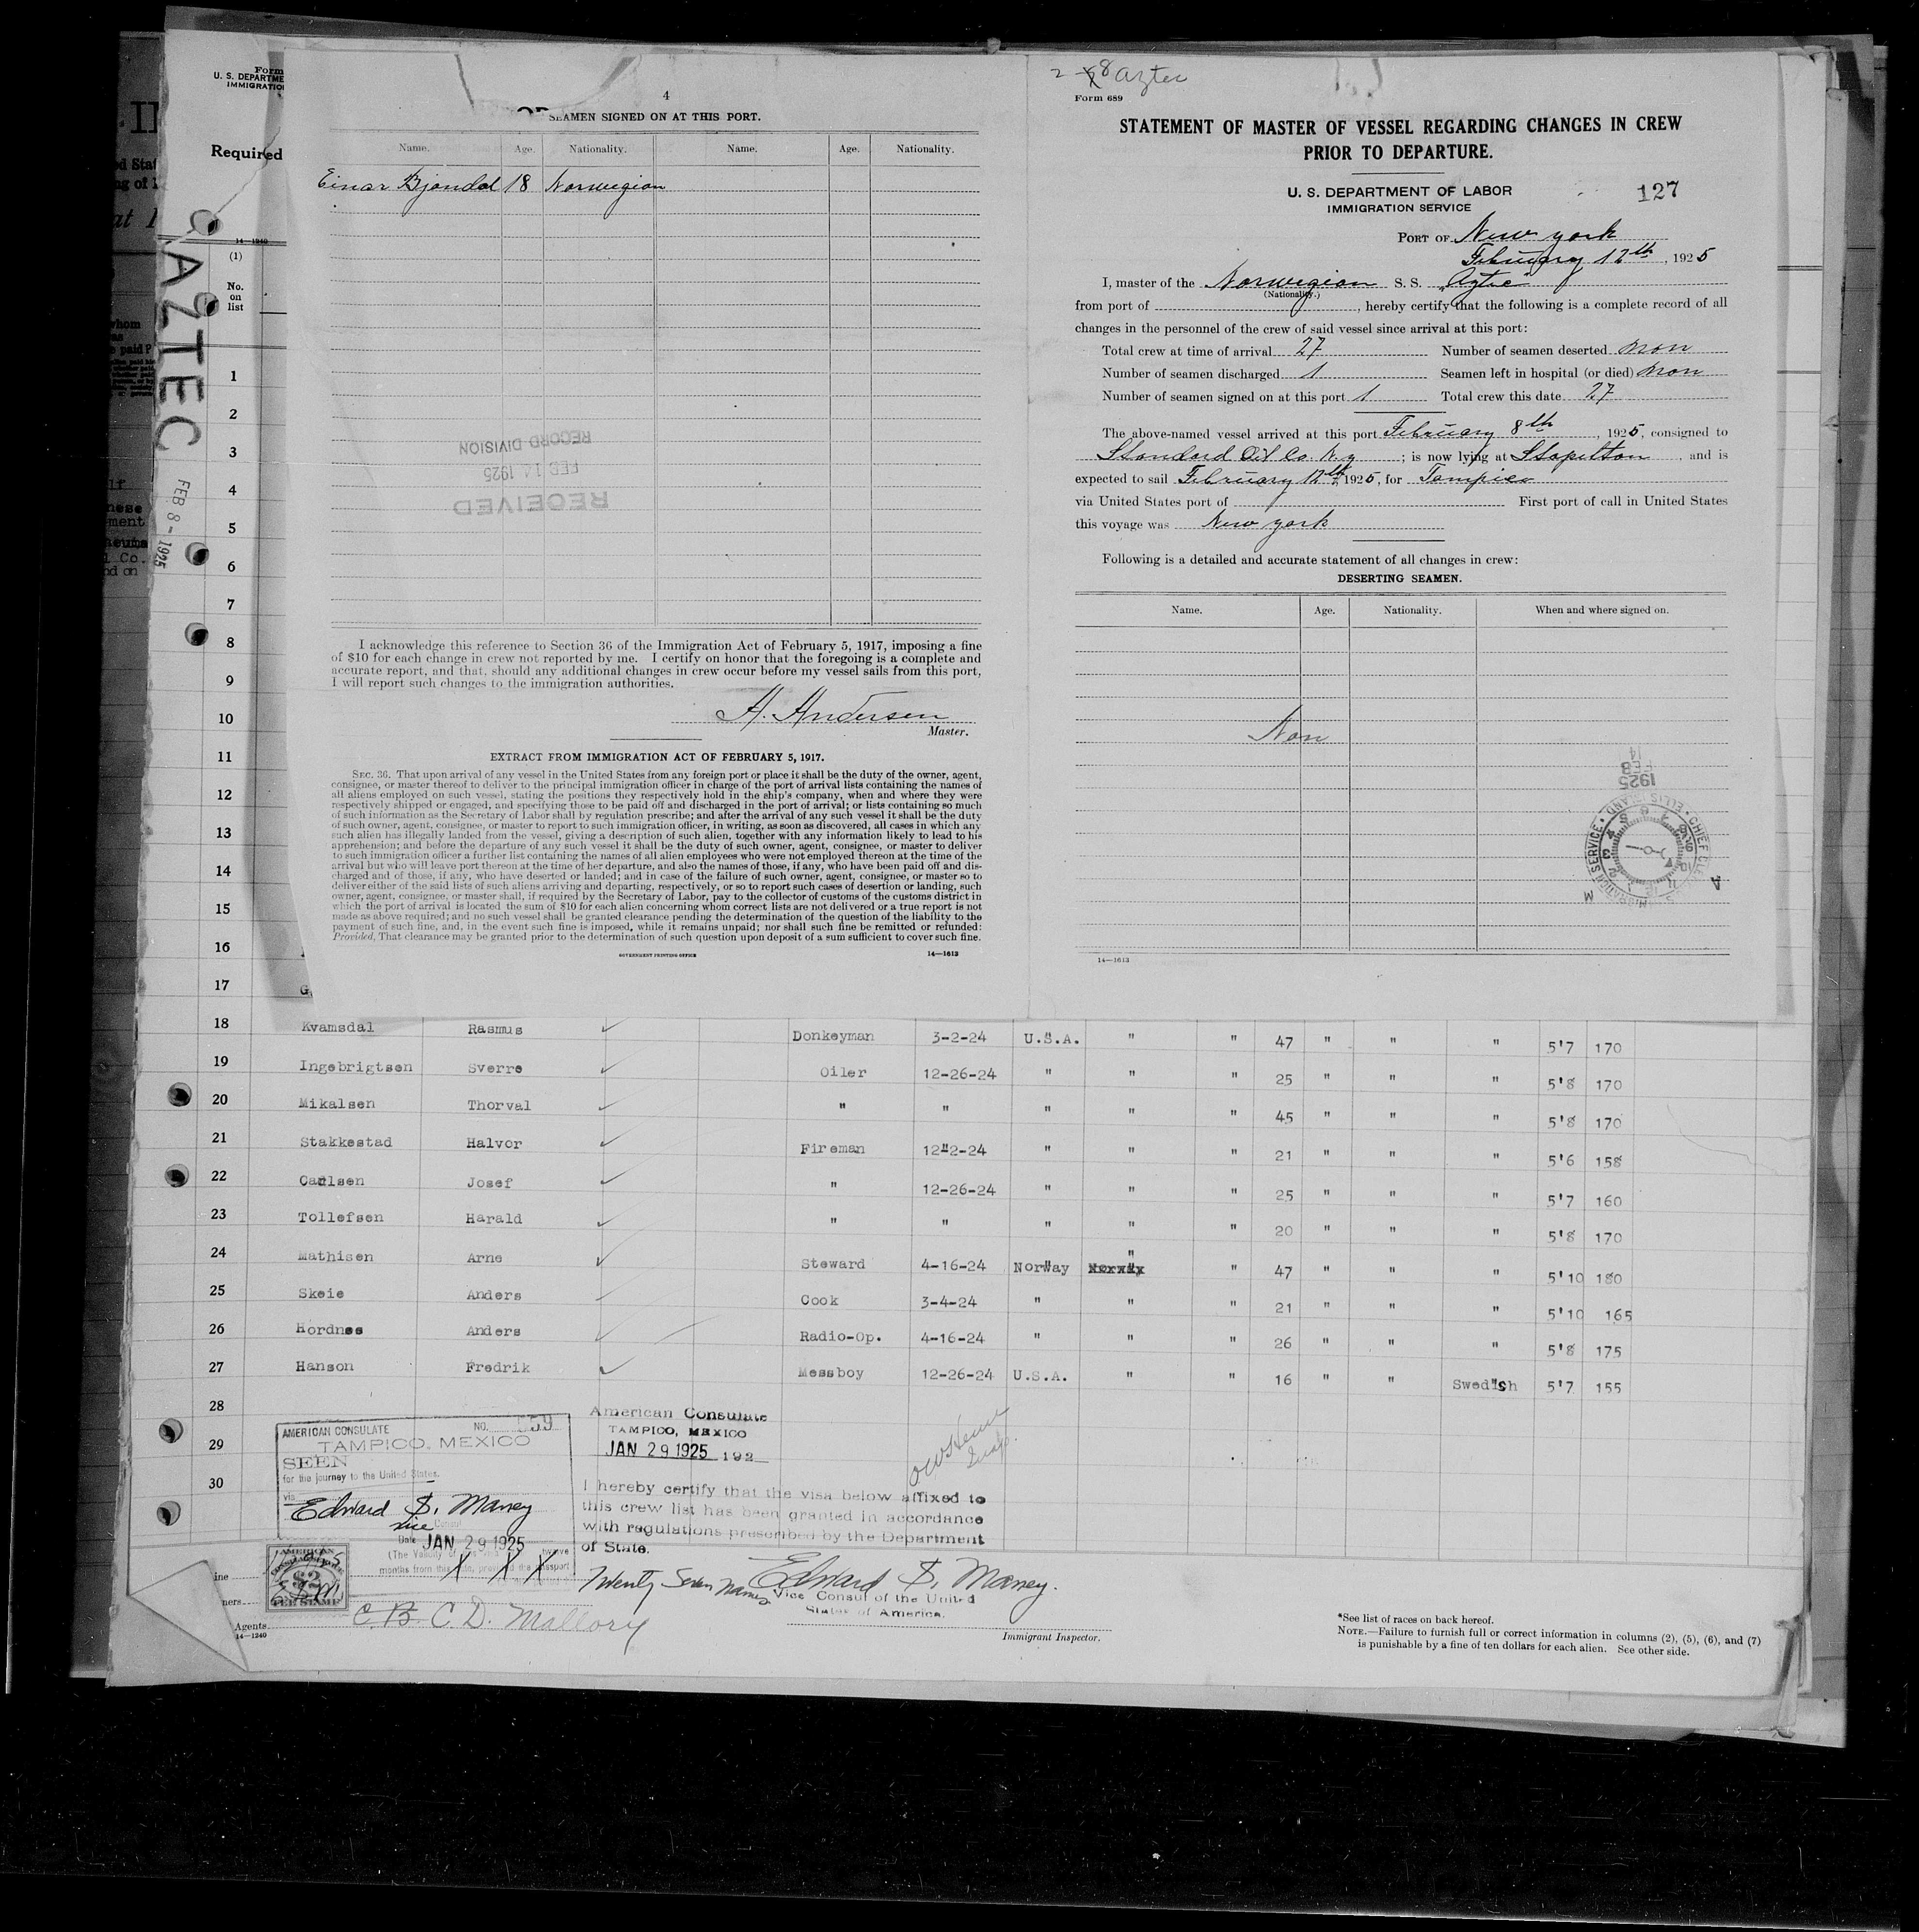 Form
U. S. DEPARTME
IMMIGRATIO
Required
14—1240
(1)
No.
on
list
AZTEC
FEB 8 - 1925
4
SEAMEN SIGNED ON AT THIS PORT.
Name. Age. Nationality. Name. Age. Nationality.
Einar Bjondal 18 Norwegian
RECEIVED
FEB 14 1925
RECORD DIVISION
I acknowledge this reference to Section 36 of the Immigration Act of February 5, 1917, imposing a fine
of $10 for each change in crew not reported by me. I certify on honor that the foregoing is a complete and
accurate report, and that, should any additional changes in crew occur before my vessel sails from this port,
I will report such changes to the immigration authorities.
A. Andersen
Master.
EXTRACT FROM IMMIGRATION ACT OF FEBRUARY 5, 1917.
SEC. 36. That upon arrival of any vessel in the United States from any foreign port or place it shall be the duty of the owner, agent,
consignee, or master thereof to deliver to the principal immigration officer in charge of the port of arrival lists containing the names of
all aliens employed on such vessel, stating the positions they respectively hold in the ship's company, when and where they were
respectively shipped or engaged, and specifying those to be paid off and discharged in the port of arrival; or lists containing so much
of such information as the Secretary of Labor shall by regulation prescribe; and after the arrival of any such vessel it shall be the duty
of such owner, agent, consignee, or master to report to such immigration officer, in writing, as soon as discovered, all cases in which any
such alien has illegally landed from the vessel, giving a description of such alien, together with any information likely to lead to his
apprehension; and before the departure of any such vessel it shall be the duty of such owner, agent, consignee, or master to deliver
to such immigration officer a further list containing the names of all alien employees who were not employed thereon at the time of the
arrival but who will leave port thereon at the time of her departure, and also the names of those, if any, who have been paid off and dis-
charged and of those, if any, who have deserted or landed; and in case of the failure of such owner, agent, consignee, or master so to
deliver either of the said lists of such aliens arriving and departing, respectively, or so to report such cases of desertion or landing, such
owner, agent, consignee, or master shall, if required by the Secretary of Labor, pay to the collector of customs of the customs district in
which the port of arrival is located the sum of $10 for each alien concerning whom correct lists are not delivered or a true report is not
made as above required; and no such vessel shall be granted clearance pending the determination of the question of the liability to the
payment of such fine, and, in the event such fine is imposed, while it remains unpaid; nor shall such fine be remitted or refunded:
Provided, That clearance may be granted prior to the determination of such question upon deposit of a sum sufficient to cover such fine.
GOVERNMENT PRINTING OFFICE 14—1613
Aztec
Form 689
STATEMENT OF MASTER OF VESSEL REGARDING CHANGES IN CREW
PRIOR TO DEPARTURE.
U. S. DEPARTMENT OF LABOR
IMMIGRATION SERVICE
127
PORT OF New york
February 12th, 1925
I, master of the Norwegian S. S. "Aztec"
(Nationality.)
from port of , hereby certify that the following is a complete record of all
changes in the personnel of the crew of said vessel since arrival at this port:
Total crew at time of arrival 27 Number of seamen deserted non
Number of seamen discharged 1 Seamen left in hospital (or died) non
Number of seamen signed on at this port 1 Total crew this date 27
The above-named vessel arrived at this port February 8th, 1925, consigned to
Standard Oil Co. N.y ; is now lying at Stapelton and is
expected to sail February 12th, 1925, for Tampico
via United States port of First port of call in United States
this voyage was New york
Following is a detailed and accurate statement of all changes in crew:
DESERTING SEAMEN.
Name. Age. Nationality. When and where signed on.
Non
1925
FEB
14
14—1613
1
2
3
4
5
6
7
8
9
10
11
12
13
14
15
16
17 G
18 Kvamsdal Rasmus Donkeyman 3-2-24 U.S.A. " " 47 " " " 5'7 170
19 Ingebrigtsen Sverre Oiler 12-26-24 " " " 25 " " " 5'8 170
20 Mikalsen Thorval " " " " " 45 " " " 5'8 170
21 Stakkestad Halvor Fireman 12"2-24 " " " 21 " " " 5'6 158
22 Carlsen Josef " 12-26-24 " " " 25 " " " 5'7 160
23 Tollefsen Harald " " " " " 20 " " " 5'8 170
24 Mathisen Arne Steward 4-16-24 Norway " " 47 " " " 5'10 180
25 Skeie Anders Cook 3-4-24 " " " 21 " " " 5'10 165
26 Hordnes Anders Radio-Op. 4-16-24 " " " 26 " " " 5'8 175
27 Hanson Fredrik Messboy 12-26-24 U.S.A. " " 16 " " Swedish 5'7 155
28
29
30
AMERICAN CONSULATE NO. 559
TAMPICO, MEXICO
SEEN
for the journey to the United States.
via
Edward S. Maney
Vice Consul
Date JAN 29 1925
American Consulate
TAMPICO, MEXICO
JAN 29 1925 192
I hereby certify that the visa below affixed to
this crew list has been granted in accordance
with regulations prescribed by the Department
of State.
Twenty Seven names
Edward S. Maney.
Vice Consul of the United
States of America.
Immigrant Inspector.
ine
ners
Agents
14—1240
C. B. C. D. Mallory
*See list of races on back hereof.
NOTE.—Failure to furnish full or correct information in columns (2), (5), (6), and (7)
is punishable by a fine of ten dollars for each alien. See other side.